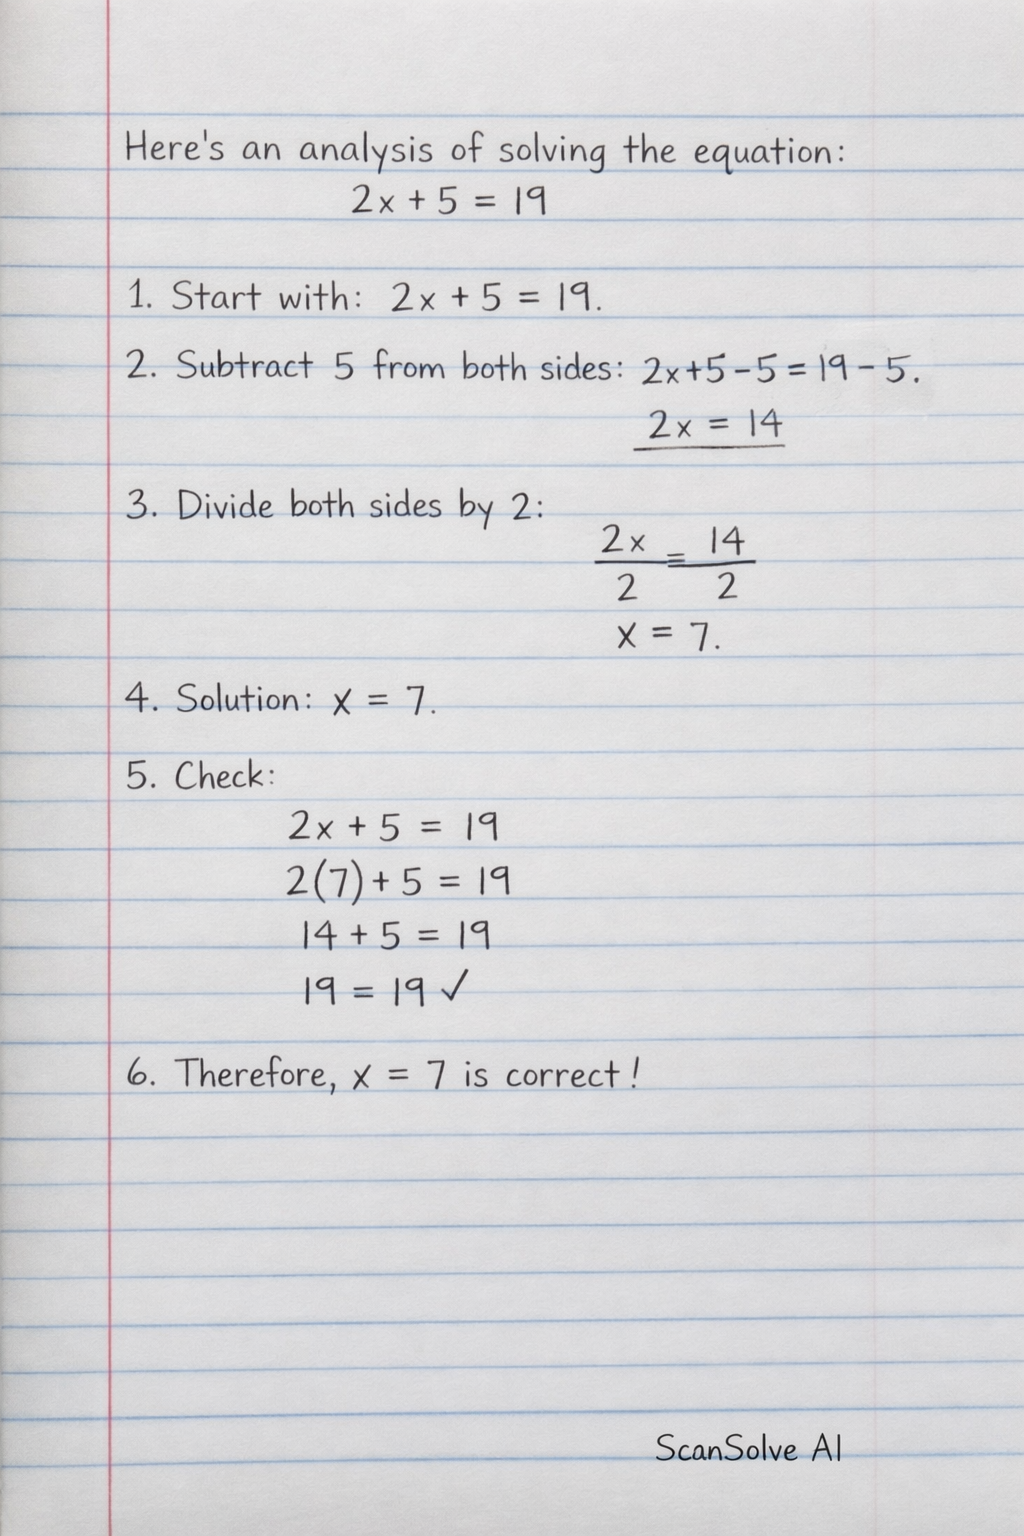 Here's an analysis of solving the equation:
2x + 5 = 19
1. Start with: 2x + 5 = 19.
2. Subtract 5 from both sides: 2x+5-5=19-5.
2x = 14
3. Divide both sides by 2:
2x/2 = 14/2
x = 7.
4. Solution: x = 7.
5. Check:
2x + 5 = 19
2(7)+5 = 19
14 + 5 = 19
19 = 19 ✓
6. Therefore, x = 7 is correct!
ScanSolve AI